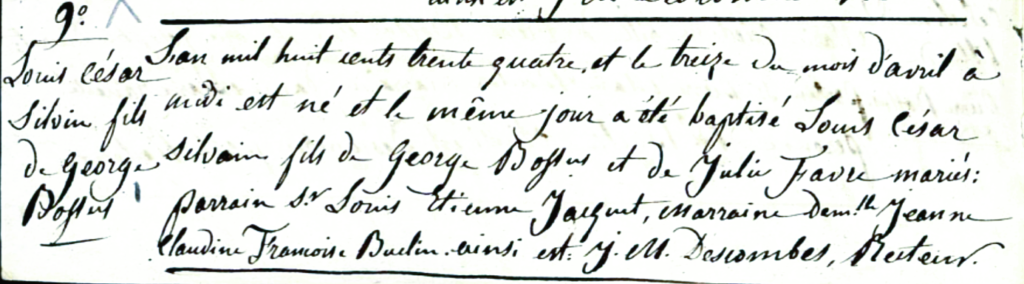 9º
Louis César
Silvin fils
de George
Bossus
L'an mil huit cents trente quatre, et le treize du mois d'avril à
midi est né et le même jour a été baptisé Louis César
Silvain fils de George Bossus et de Julie Favre mariés:
parrain sr Louis Etienne Jacquet, marraine demlle Jeanne
Claudine Francoise Buclin. ainsi est: J. M. Descombes, Recteur.